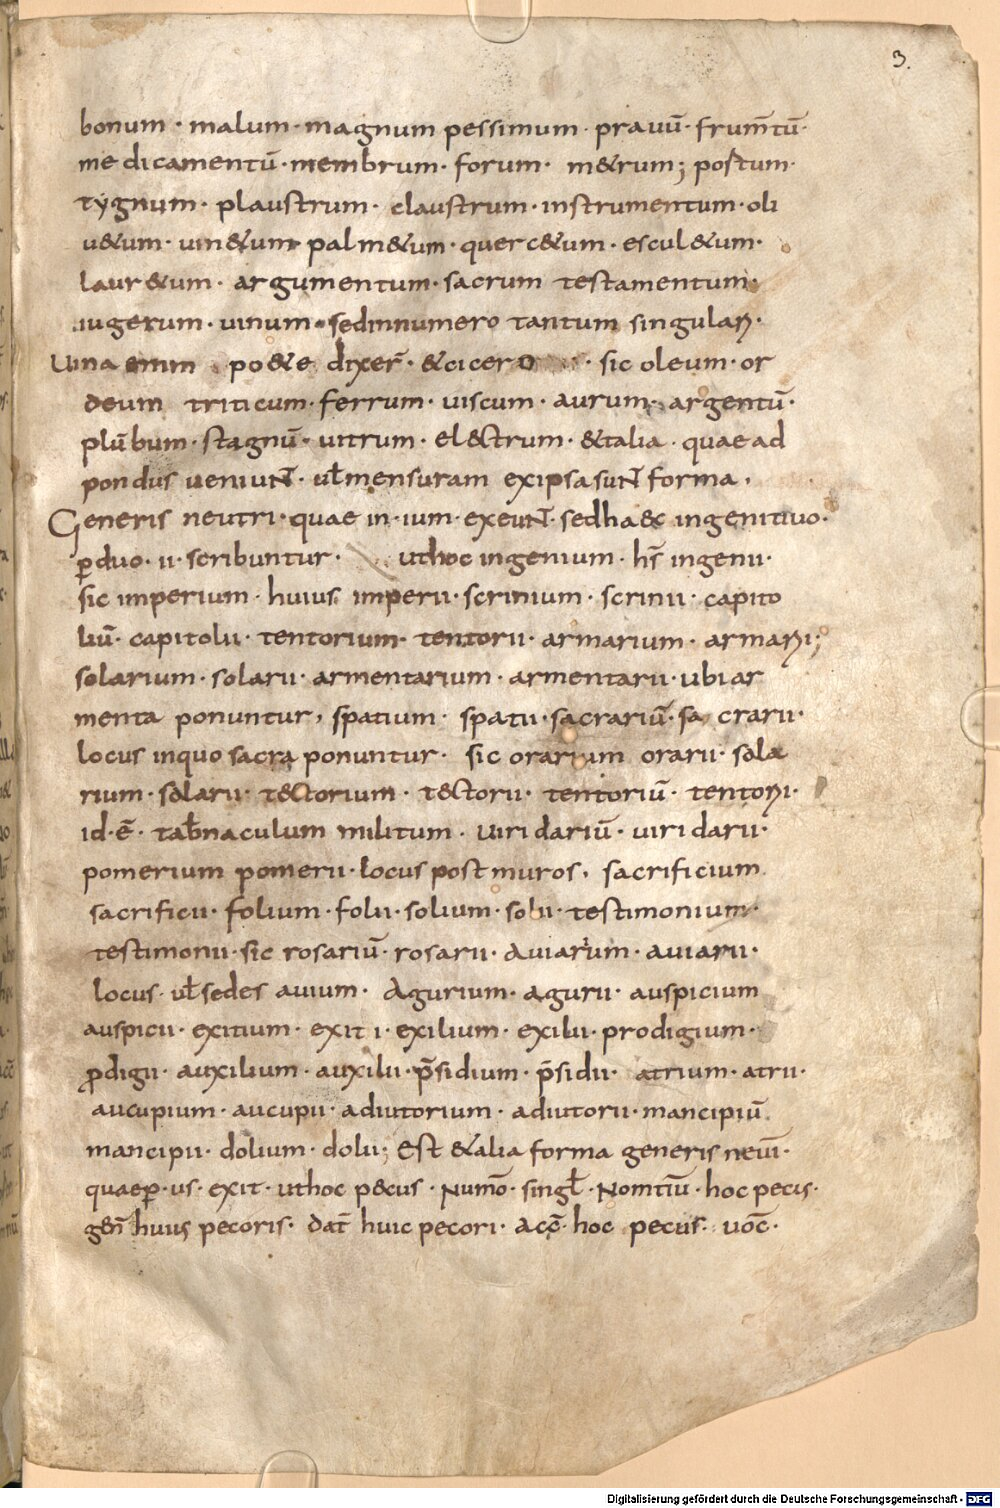 3.
bonum · malum · magnum pessimum · prauū · frum̄tū ·
medicamentū · membrum · forum · m&rum; postum ·
tygnum · plaustrum · claustrum · instrumentum · oli
u&um · uin&um palm&um · querc&um · escul&um ·
laur&um · argumentum · sacrum testamentum ·
iugerum · uinum · sedinnumero tantum singulari ·
Uina enim po&e dixer̄ · &cicero · sic oleum · or
deum triticum · ferrum · uiscum · aurum · argentū ·
plūbum · stagnū · uitrum · el&ctrum · &talia · quaead
pondus ueniunt · uł mensuram exipsa sunt forma ·
Generis neutri · quae in · ium · exeunt · sedhaec ingenitiuo ·
ꝑduo · ii · scribuntur · uthoc ingenium · hs̄ ingenii ·
sic imperium · huius imperii · scrinium · scrinii · capito
liū · capitolii · tentorium · tentorii · armarium · armarii;
solarium · solarii · armentarium · armentarii · ubi ar
menta ponuntur, spatium · spatii · sacrariū · sacrarii ·
locus inquo sacra ponuntur · sic orarium orarii · sola
rium · solarii · tectorium · tectorii · tentoriū · tentorii ·
id · ē · tab̄naculum militum · uiridariū · uiridarii ·
pomerium pomerii · locus post muros, sacrificium
sacrificii · folium · folii · solium · solii · testimonium ·
testimonii · sic rosariū · rosarii · auiarium · auiarii ·
locus · uł sedes auium · Agurium · agurii · auspicium
auspicii · exitium · exitii · exilium · exilii · prodigium ·
ꝓdigii · auxilium · auxilii · p̄sidium · p̄sidii · atrium · atrii ·
aucupium · aucupii · adiutorium · adiutorii · mancipiū
mancipii · dolium · dolii; Est &alia forma generis neut̄i ·
quaeꝑ · us · exit · uthoc pecus · Num̄o · singł · Nom̄tiū · hoc pecus ·
gen̄ huius pecoris · dat̄ huic pecori · acc̄ · hoc pecus · uoc̄ ·
Digitalisierung gefördert durch die Deutsche Forschungsgemeinschaft - DFG